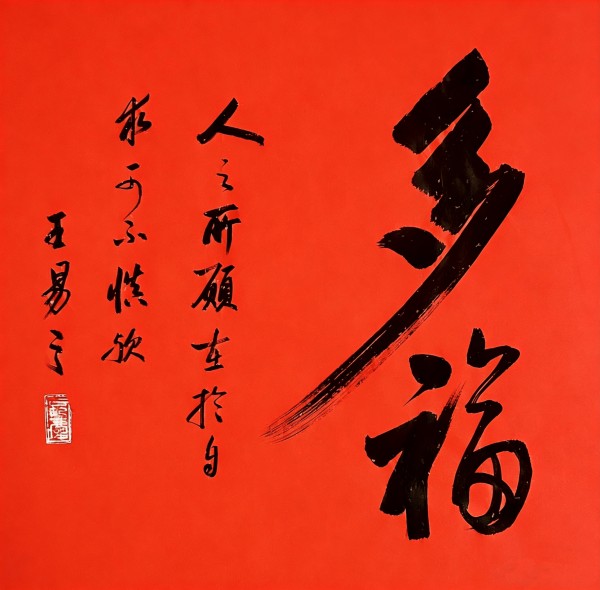 多福
人之所願在於自
求可不慎欤
王易之